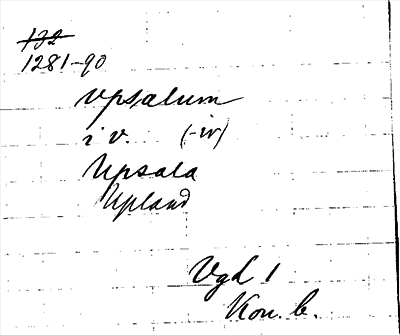 132
1281-90
vpsalum
i v. (-iv)
Upsala
Upland
VgL 1
Kon. b.